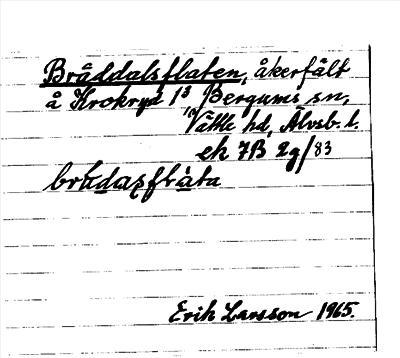 Bråddalsflaten, åkerfält
å Krokryd 1³ Bergums sn,
Vättle hd, Älvsb. l.
ek 7B 2g/83
brådasflàta
Erik Larsson 1965.